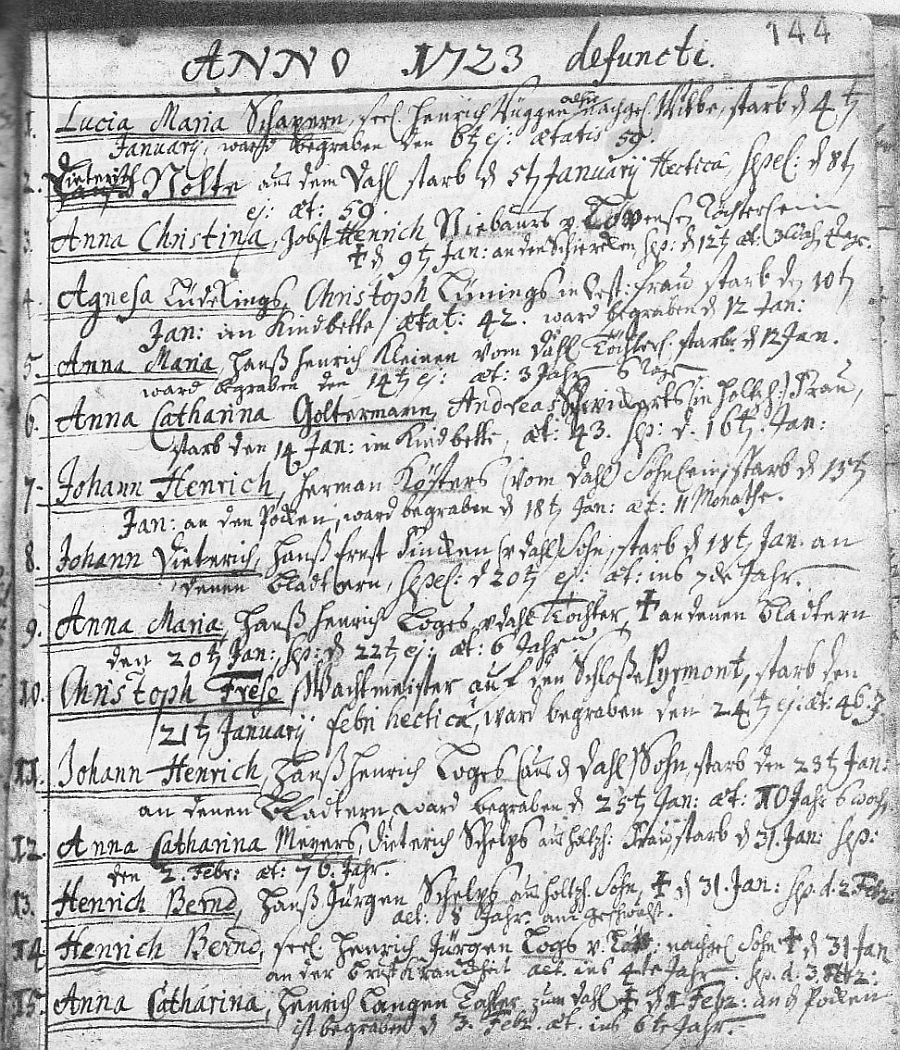 144
ANNO 1723 defuncti.
1. Lucia Maria Schapern, seel. Henrich nachgel. Witbe, starb d 4t
Januarij, ward begraben den 6t ej: ætatis 59.
2. Dieterich Nolte aus dem Dahl starb d 5t Januarij Hectica Sepel: d 8t
ej: æt: 59.
3. Anna Christina, Jobst Henrich Niebaurs v. Töchterlein
† d 9t Jan: an den Sep: d 12t æt.
4. Agnesa Lüdekings, Christoph Tünings in Frau starb den 10t
Jan: im Kindbette, ætat: 42. ward begraben d 12 Jan:
5. Anna Maria, Hanß Henrich Kleinen vom Dahl Töchterl. starb d 12 Jan.
ward begraben den 14t ej: æt: 3 Jahr 6 Tage
6. Anna Catharina Goltermann, Andreas (in Holtzh:) Frau,
starb den 14 Jan: im Kindbette, æt: 43. sep: d. 16t. Jan:
7. Johann Henrich, Herman Kösters (vom Dahl) Söhnlein, starb d 15t
Jan: an den Pocken, ward begraben d 18t Jan: æt: 11 Monathe.
8. Johann Dieterich, Hanß Ernst (v Dahl) Sohn, starb d 18t Jan. an
denen Bladtern, Sepel: d 20t ej: æt: ins 7de Jahr.
9. Anna Maria, Hanß Henrich Loges v. Dahl Tochter, † an denen Bladtern
den 20t Jan:, sep: d 22t ej: æt: 6 Jahr
10. Christoph Frese, Wachtmeister auf den Schloße Pyrmont, starb den
21t Januarij febri hectica, ward begraben den 24t ej: æt: 46. J
11. Johann Henrich, Hanß Henrich Loges (aus d Dahl) Sohn, starb den 23t Jan:
an denen Bladtern ward begraben d 25t Jan: æt: 10 Jahr 6 woch
12. Anna Catharina Meyers, Dieterich Schelps aus Holtzh: Frau, starb d 31. Jan: sep:
den 2. Febr: æt: 76. Jahr.
13. Henrich Bernd, Hanß Jürgen Schelps aus Holtzh. Sohn, † d 31. Jan: sep. d. 2 Febr:
aet: 8 Jahr.
14. Henrich Bernd, seel. Henrich Jürgen Logs v. nachgel Sohn † d 31 Jan
an der Brust Kranckheit aet. ins 4te Jahr. sep. d. 3 Febr:
15. Anna Catharina, Henrich Langen Tochter zum Dahl † d 1 Febr: an d Pocken
ist begraben d 3. Febr. æt. ins 6te Jahr.